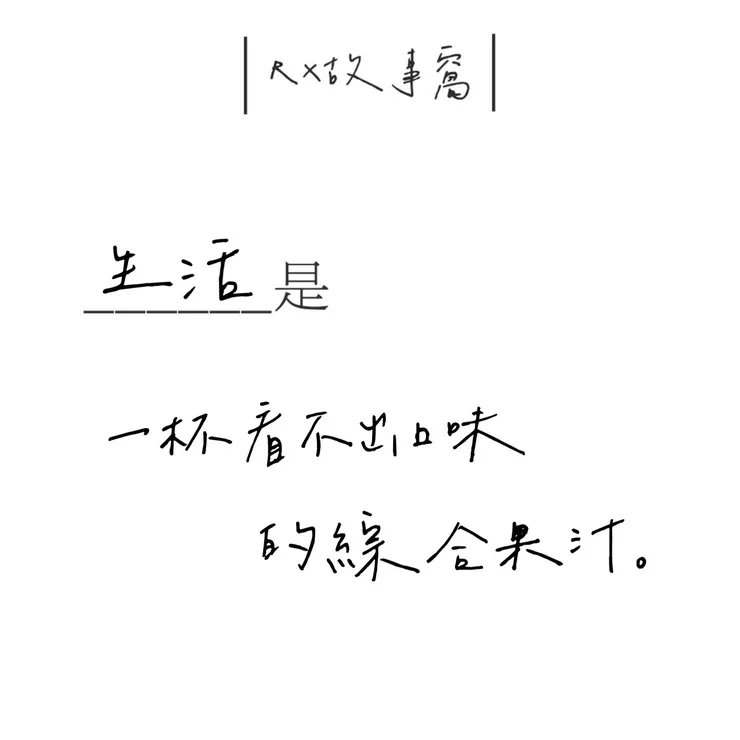 |R×故事窩|
生活是
一杯看不出口味
的綜合果汁。